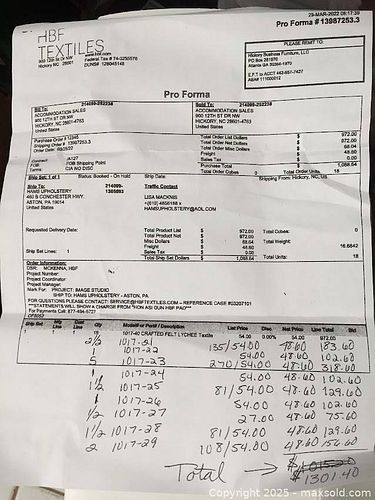 29-MAR-2022 09:17:39
Pro Forma # 13987253.3
HBF
TEXTILES
www.hbf.com
900 12th St Dr NW
Hickory NC 28601
PLEASE REMIT TO:
Hickory Business Furniture, LLC
PO Box 281970
Atlanta GA 30384-1970
Pro Forma
Bill To:
214099-252238
ACCOMMODATION SALES
900 12TH ST DR NW
HICKORY, NC 28601-4763
United States
Sold To:
214099-252238
ACCOMMODATION SALES
900 12TH ST DR NW
HICKORY, NC 28601-4763
United States
Purchase Order # 12345
Shipping Order # 13987253.3
Order Date: 03/25/22
Total Order List Dollars $ 972.00
Total Order Net Dollars $ 972.00
Total Order Misc Dollars $ 68.04
Freight $ 48.60
Sales Tax $ 0.00
Purchase Total $ 1,088.64
Contract JA127
FOB: FOB Shipping Point
Terms CIA NO DISC
Total Order Cubes 0 Total Order Units 18
Ship Set: 1 of 1 Status: Booked - On Hold Ship Date: Shipping From: Hickory, NC, US
Ship To: 214099-1305093
HAMS UPHOLSTERY
460 S CONCHESTER HWY.
ASTON, PA 19014
United States
Traffic Contact
LISA MACKNIS
HAMSUPHOLSTERY@AOL.COM
Requested Delivery Date:
Total Product List $ 972.00 Total Cubes: 0
Total Product Net $ 972.00
Misc Dollars $ 68.04 Total Weight: 16.6642
Freight $ 48.60
Sales Tax $ 0.00
Ship Set Lines: 1 Total Ship Set Dollars $ 1,088.64 Total Units: 18
Order Information:
DSR: MCKENNA, HBF
Project Number:
Project Coordinator:
Project Manager:
Mark For: PROJECT: IMAGE STUDIO
SHIP TO: HAMS UPHOLSTERY - ASTON, PA
FOR QUESTIONS PLEASE CONTACT: SERVICE@HBFTEXTILES.COM - REFERENCE CASE #03207101
For Payments Call: 877-494-5727
Ship Set Cust Line Line Qty Model# or Part# / Description List Price Disc Net Price Line Total
1 18 1017-40 CRAFTED FELT LYCHEE Textile 54.00 0.00% 54.00 972.00
2/2 1017-21 135/54.00 48.60 83.60
1 1017-22 54.00 48.60 102.60
5 1017-23 270/54.00 48.60 318.60
1 1017-24 54.00 48.60 102.60
1 1/2 1017-25 81/54.00 48.60 129.60
1 1017-26 54.00 48.60 102.60
1/2 1017-27 27.00 48.60 75.60
1 1/2 1017-28 81/54.00 48.60 129.60
2 1017-29 108/54.00 48.60 156.60
Total → $
$1301.40
Copyright © 2025 - maksold.com